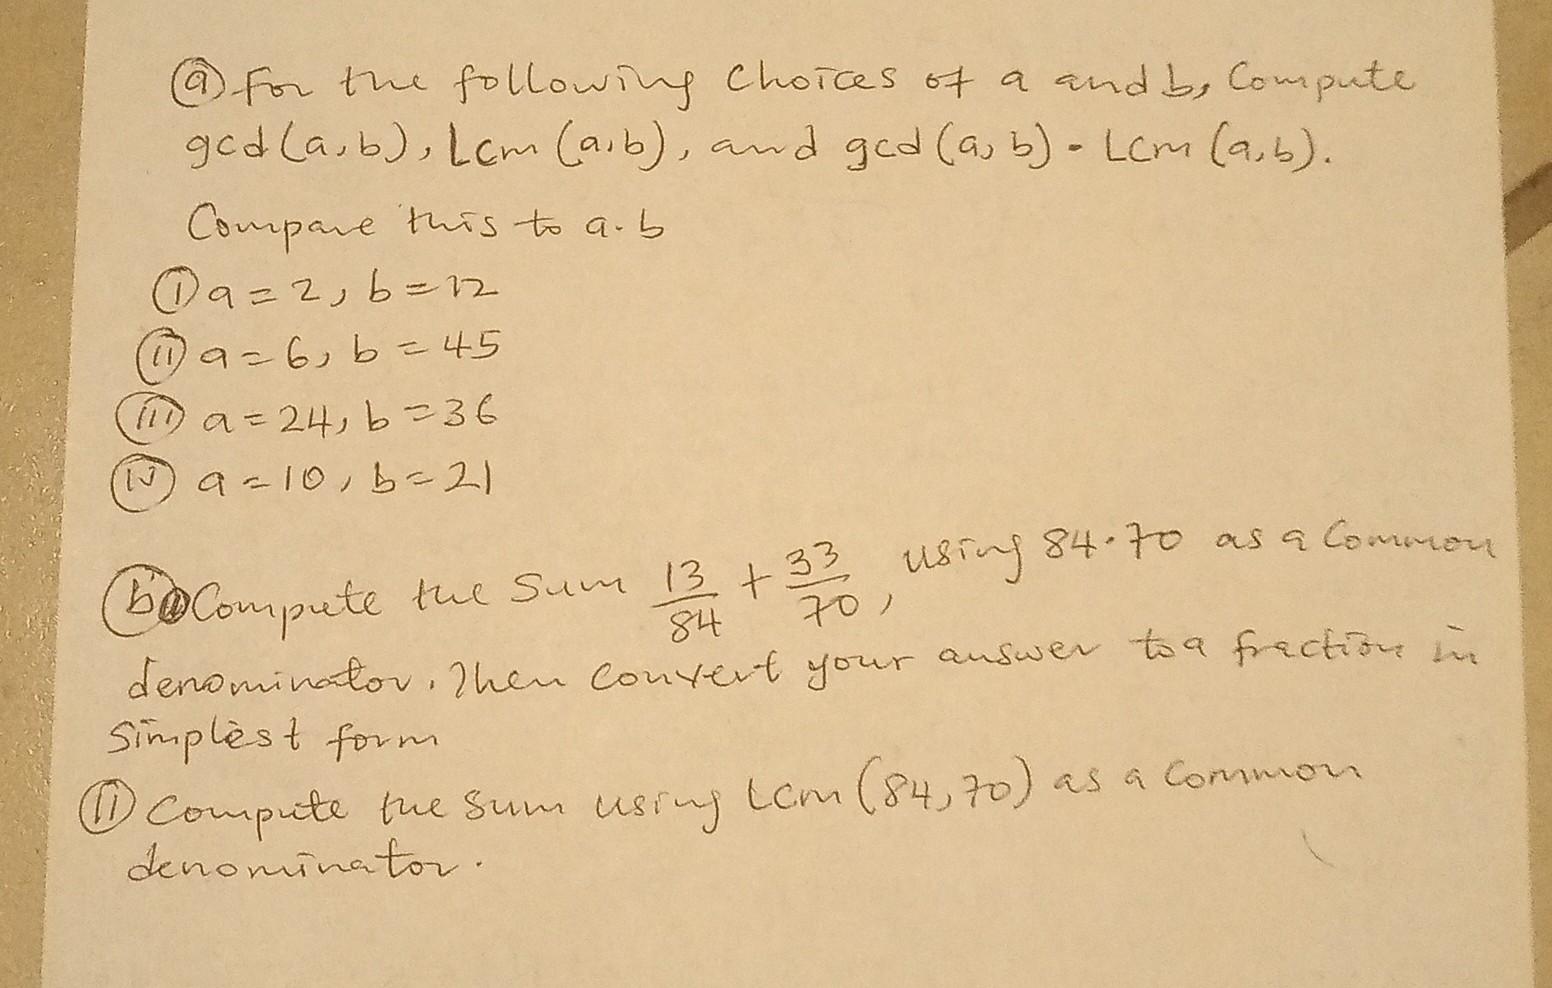 ⓐ For the following Choices of a and b, Compute
gcd(a,b), Lcm (a,b), and gcd (a, b) • Lcm (a,b).
Compare this to a.b
ⓘ a = 2, b = 12
ⓘⓘ a = 6, b = 45
ⓘⓘⓘ a = 24, b = 36
ⓘⓥ a = 10, b = 21
ⓑ Compute the Sum 13/84 + 33/70, using 84.70 as a Common
denominator. Then Convert your answer to a fraction in
Simplest form
ⓘⓘ Compute the Sum using Lcm (84,70) as a Common
denominator.